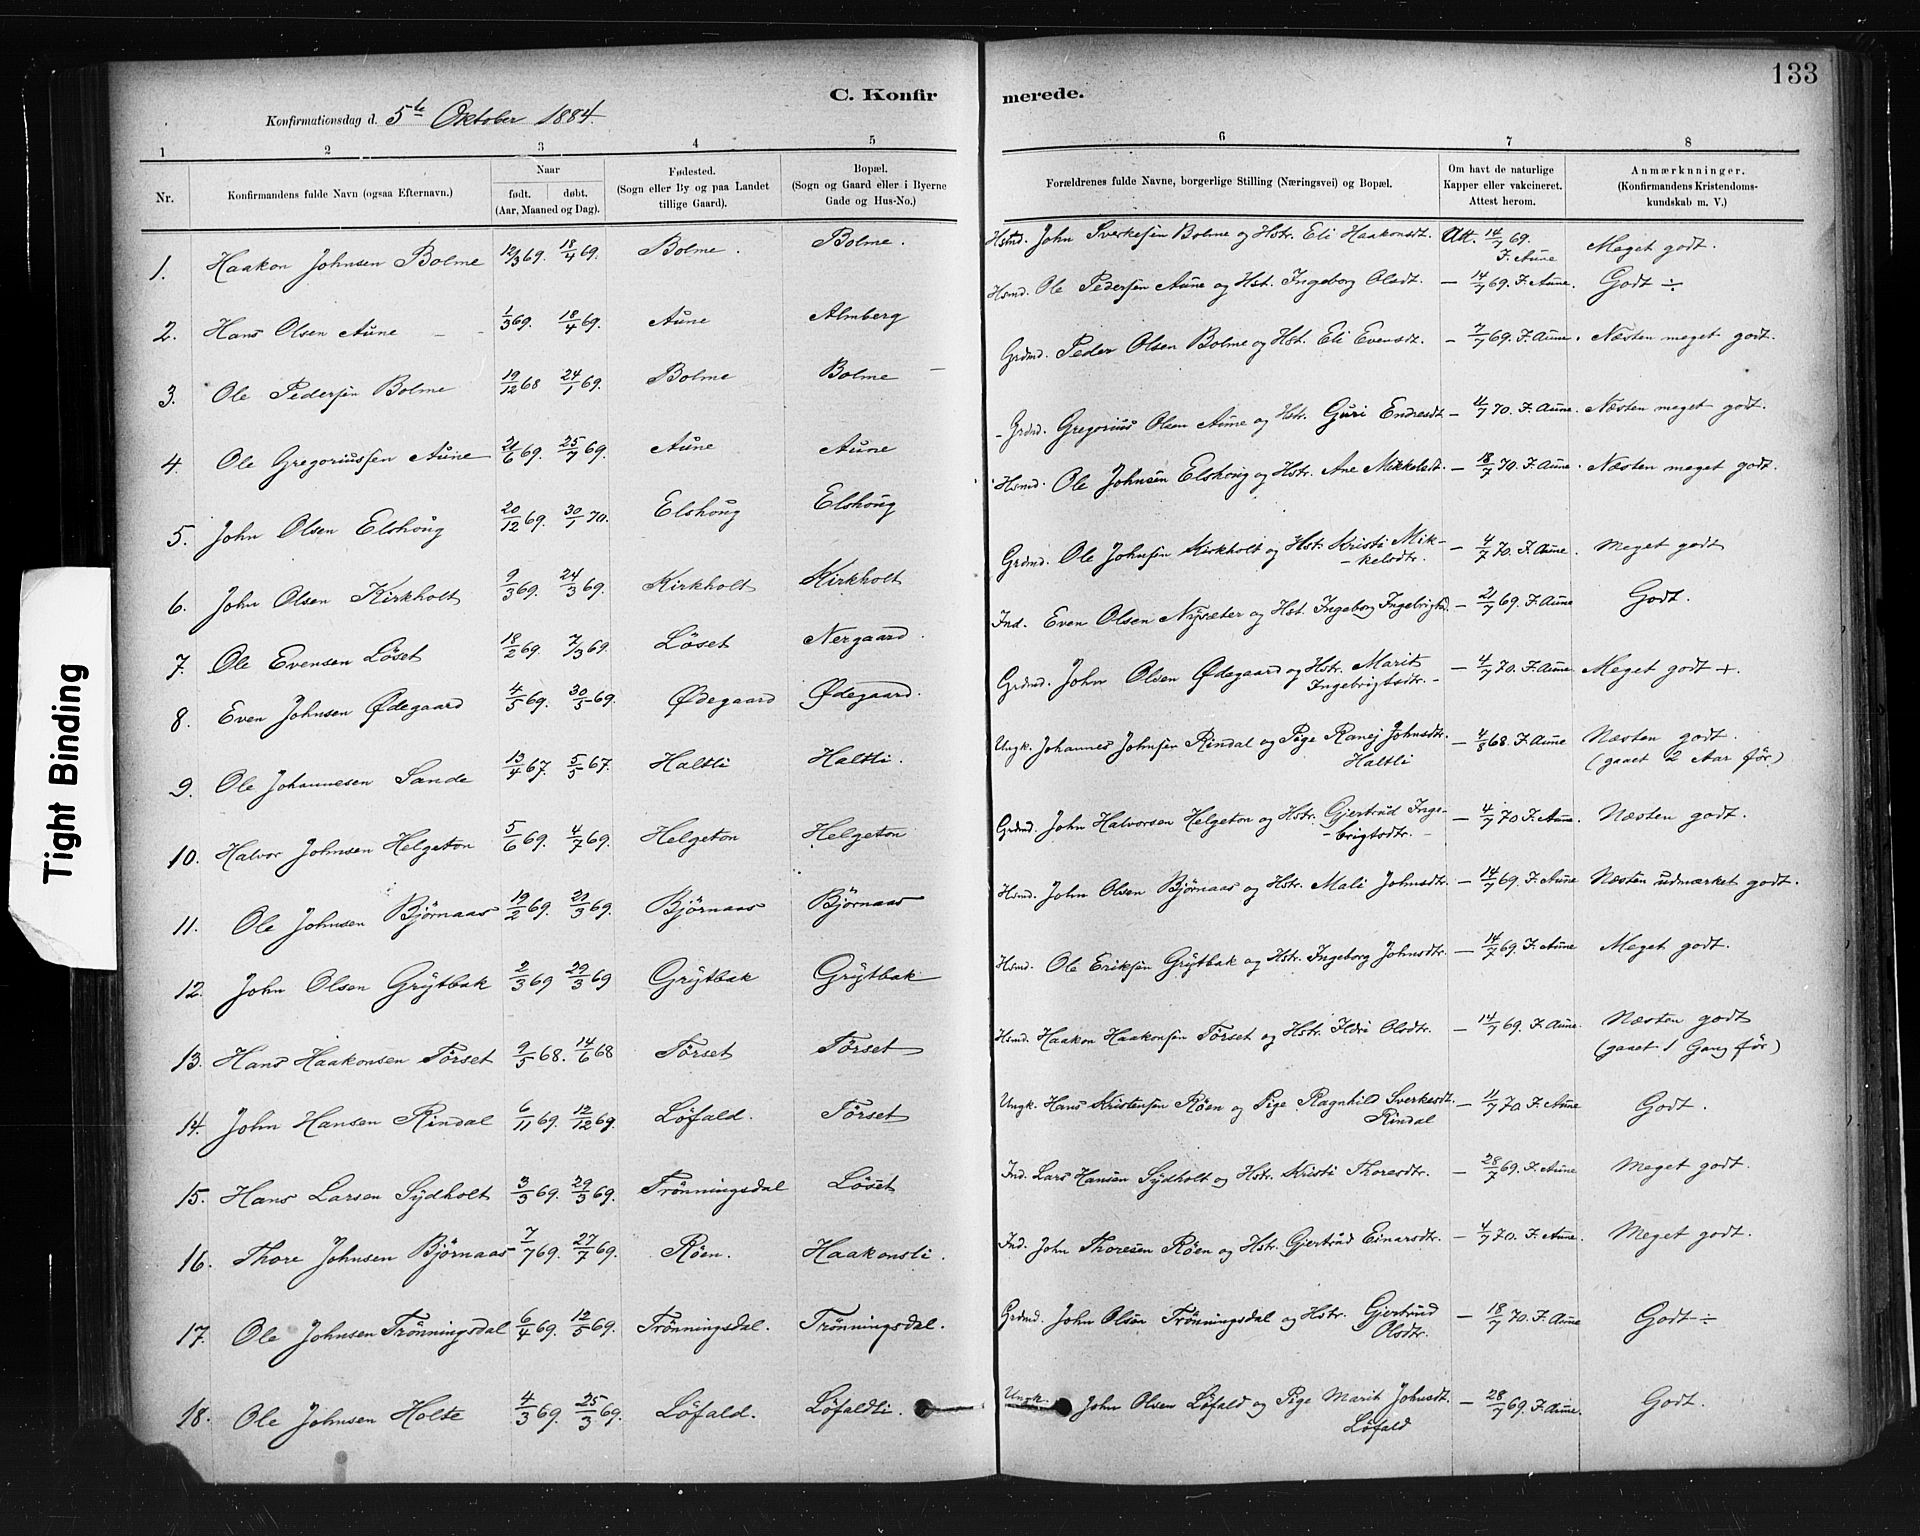 133
C. Konfirmerede.
Konfirmationsdag d. 5te Oktober 1884.
1 2 3 4 5 6 7 8
Nr. Konfirmandens fulde Navn (ogsaa Efternavn.) Naar født. døbt. (Aar, Maaned og Dag). Fødested. (Sogn eller By og paa Landet tillige Gaard). Bopæl. (Sogn og Gaard eller i Byerne Gade og Hus-No.) Forældrenes fulde Navne, borgerlige Stilling (Næringsvei) og Bopæl. Om havt de naturlige Kapper eller vakcineret. Attest herom. Anmærkninger. (Konfirmandens Kristendomskundskab m. V.)
1. Haakon Johnsen Bolme 12/3 69. 18/4 69. Bolme. Bolme. Hsmd. John Sverkesen Bolme og Hstr. Eli Haakonsdt. Att. 14/7 69. F. Aune Meget godt.
2. Hans Olsen Aune 1/3 69. 18/4 69. Aune Almberg Hsmd. Ole Pedersen Aune og Hst. Ingeborg Olsdt. — 14/7 69. F. Aune. Godt ÷
3. Ole Pedersen Bolme 19/12 68 24/1 69. Bolme Bolme Grdmd. Peder Olsen Bolme og Hst. Eli Evensdt. — 7/7 69. F. Aune. Næsten meget godt.
4. Ole Gregoriussen Aune 21/6 69. 25/7 69. Aune Aune Grdmd. Gregorius Olsen Aune og Hstr. Guri Endresdt — 11/7 70. F. Aune. Næsten meget godt.
5. John Olsen Elshoug 20/12 69. 30/1 70. Elshoug Elshoug Hsmd. Ole Johnsen Elshoug og Hstr. Ane Mikkelsdt. — 18/7 70. F. Aune. Næsten meget godt.
6. John Olsen Kirkholt 9/3 69. 24/3 69. Kirkholt Kirkholt Grdmd. Ole Johnsen Kirkholt og Hst. Kristi Mikkelsdtr. — 4/7 70. F. Aune. Meget godt
7. Ole Evensen Løset 18/2 69. 7/3 69. Løset Nergaard. Ind. Even Olsen Nysæter og Hst. Ingeborg Ingebrigtsd. — 21/7 69. F. Aune Godt.
8. Even Johnsen Ødegaard 4/5 69. 30/5 69. Ødegaard Ødegaard. Grdmd. John Olsen Ødegaard og Hstr. Marit Ingebrigtsdtr. — 4/7 70. F. Aune. Meget godt +.
9. Ole Johannesen Sande 13/4 67. 5/5 67. Haltli Haltli. Ungk. Johannes Johnsen Rindal og Pige Ranej Johnsdtr. Haltli — 4/8 68. F. Aune Næsten godt. (gaaet 2 Aar før)
10. Halvor Johnsen Helgeton 5/6 69. 4/7 69. Helgeton Helgeton Grdmd. John Halvorsen Helgeton og Hstr. Gjertrud Ingebrigtsdtr. — 4/7 70 F. Aune. Næsten godt.
11. Ole Johnsen Bjørnaas 19/2 69. 21/3 69. Bjørnaas Bjørnaas Hsmd. John Olsen Bjørnaas og Hstr. Mali Johnsdtr. — 14/7 69. F. Aune Næsten udmærket godt.
12. John Olsen Grytbak 2/3 69 29/3 69 Grytbak Grytbak Hsmd. Ole Eriksen Grytbak og Hstr. Ingeborg Johnsdtr. — 14/7 69. F. Aune Meget godt.
13. Hans Haakonsen Tørset 9/5 68. 14/6 68 Tørset Tørset Hsmd. Haakon Haakonsen Tørset og Hstr. Ildri Olsdtr. — 14/7 69. F. Aune. Næsten godt (gaaet 1 Gang før)
14. John Hansen Rindal 6/11 69. 12/12 69. Løfald. Tørset Ungk. Hans Kristensen Røen og Pige Ragnhild Sverkesdt. Rindal — 11/7 70. F. Aune Godt.
15. Hans Larsen Sydholt 3/3 69. 29/3 69. Trønningsdal Løset Ind. Lars Hansen Sydholt og Hstr. Kristi Thoresdtr. — 28/7 69. F. Aune Meget godt.
16. Thore Johnsen Bjørnaas 7/7 69. 27/7 69. Røen. Haakonsli. Ind. John Thoresen Røen og Hstr. Gjertrud Einarsdtr. — 4/7 70. F. Aune. Meget godt.
17. Ole Johnsen Trønningsdal 6/4 69. 12/5 69. Trønningsdal. Trønningsdal. Grdmd. John Olsen Trønningsdal og Hstr. Gjertrud Olsdtr. — 18/7 70. F. Aune Godt ÷
18. Ole Johnsen Holte 4/3 69. 25/3 69. Løfald. Løfaldli. Ungk. John Olsen Løfald og Pige Marit Johnsdt. Løfald — 28/7 69. F. Aune. Godt.
Tight Binding